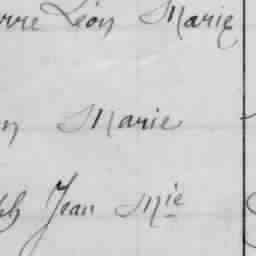 erre Léon Marie
n Marie
ph Jean Mie